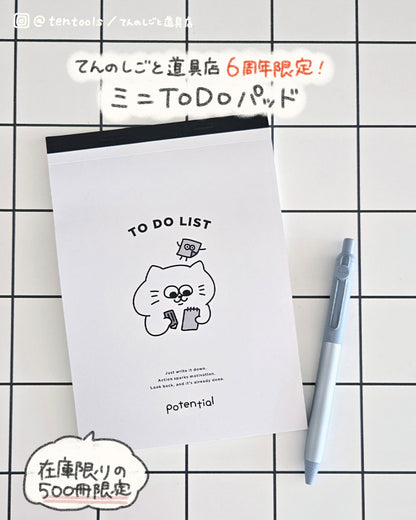 @tentools/てんのしごと道具店
てんのしごと道具店 6周年限定!
ミニToDoパッド
TO DO LIST
Just write it down.
Action sparks motivation.
Look back, and it's already done.
potential
在庫限りの
500冊限定